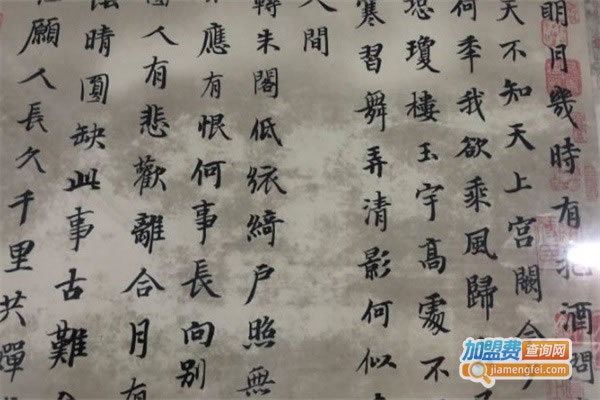 明月幾時有把酒問
天不知天上宮闕今
何秊我欲乘風歸
恐瓊樓玉宇高處不
寒習舞弄清影何似
人間
轉朱閣低綺户照無
應有恨何事長向别
人有悲歡離合月有
陰晴圓缺此事古難
願人長久千里共嬋
加盟费查询网
jiamengfei.com